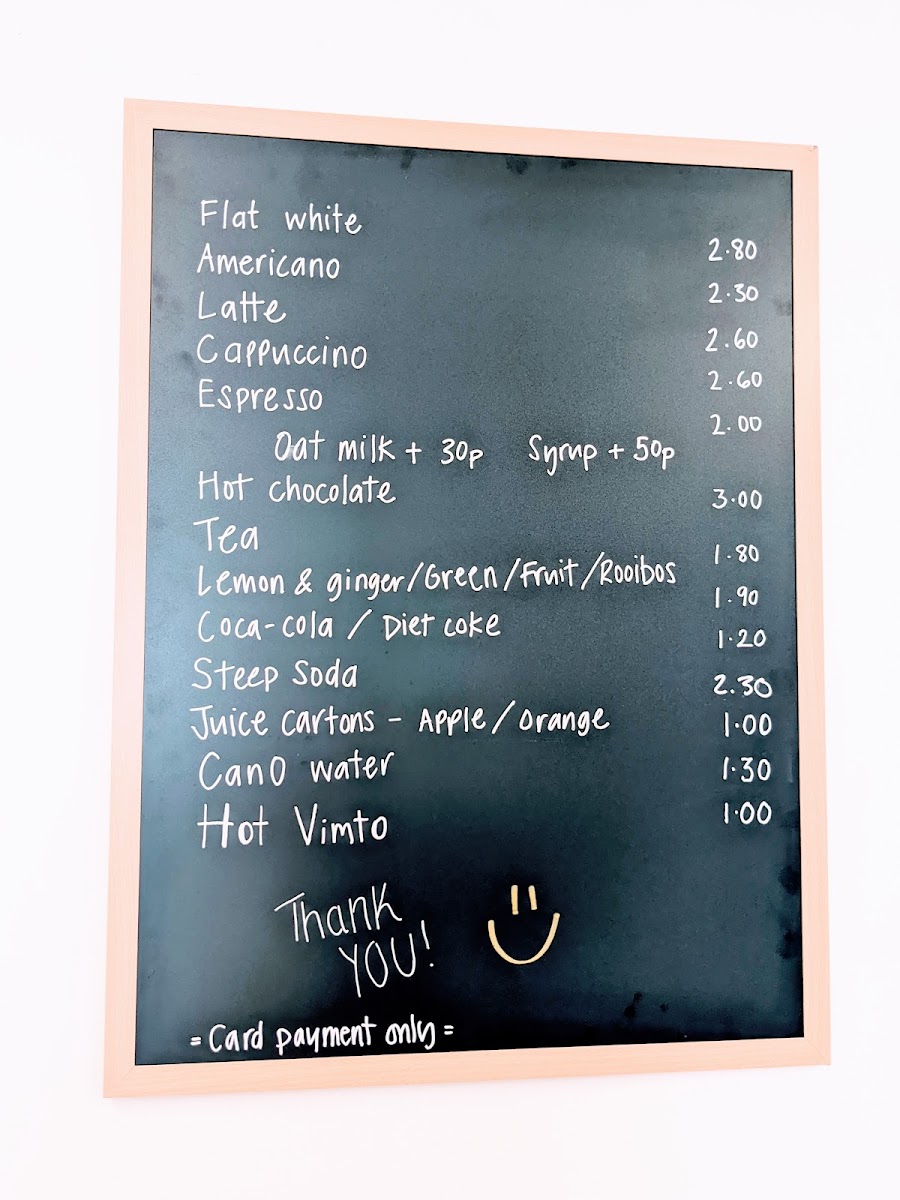 Flat white 2.80
Americano 2.30
Latte 2.60
Cappuccino 2.60
Espresso 2.00
Oat milk + 30p Syrup + 50p
Hot chocolate 3.00
Tea 1.80
Lemon & ginger/Green/Fruit/Rooibos 1.90
Coca-cola / Diet coke 1.20
Steep Soda 2.30
Juice cartons - Apple/orange 1.00
CanO water 1.30
Hot Vimto 1.00
Thank
YOU!
= Card payment only =